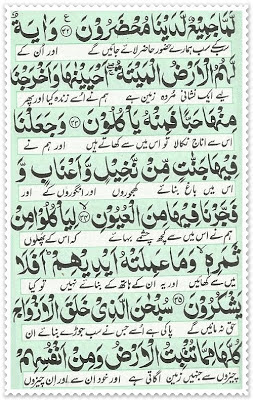 لَّمَّا جَمِيْعٌ لَّدَيْنَا مُحْضَرُوْنَ ۝٣٢ ع وَاٰيَةٌ
سب کے سب ہمارے حضور حاضر لائے جائیں گے اور ان کے
لَّهُمُ الْاَرْضُ الْمَيْتَةُ ۖ اَحْيَيْنٰهَا وَاَخْرَجْنَا
لیے ایک نشانی مردہ زمین ہے ہم نے اسے زندہ کیا اور پھر
مِنْهَا حَبًّا فَمِنْهُ يَاْكُلُوْنَ ۝٣٣ وَجَعَلْنَا
اس سے اناج نکالا تو اس میں سے کھاتے ہیں اور ہم نے
فِيْهَا جَنّٰتٍ مِّنْ نَّخِيْلٍ وَّاَعْنَابٍ وَّ
اس میں باغ بنائے کھجوروں اور انگوروں کے اور
فَجَّرْنَا فِيْهَا مِنَ الْعُيُوْنِ ۝٣٤ لِيَاْكُلُوْا مِنْ
ہم نے اس میں سے کچھ چشمے بہائے کہ اس کے پھلوں
ثَمَرِهٖ ۙ وَمَا عَمِلَتْهُ اَيْدِيْهِمْ ؕ اَفَلَا
میں سے کھائیں اور یہ ان کے ہاتھ کے بنائے نہیں تو کیا
يَشْكُرُوْنَ ۝٣٥ سُبْحٰنَ الَّذِيْ خَلَقَ الْاَزْوَاجَ
حق نہ مانیں گے پاکی ہے اسے جس نے سب جوڑے بنائے ان
كُلَّهَا مِمَّا تُنْۢبِتُ الْاَرْضُ وَمِنْ اَنْفُسِهِمْ
چیزوں سے جنہیں زمین اگاتی ہے اور خود ان سے اور ان چیزوں